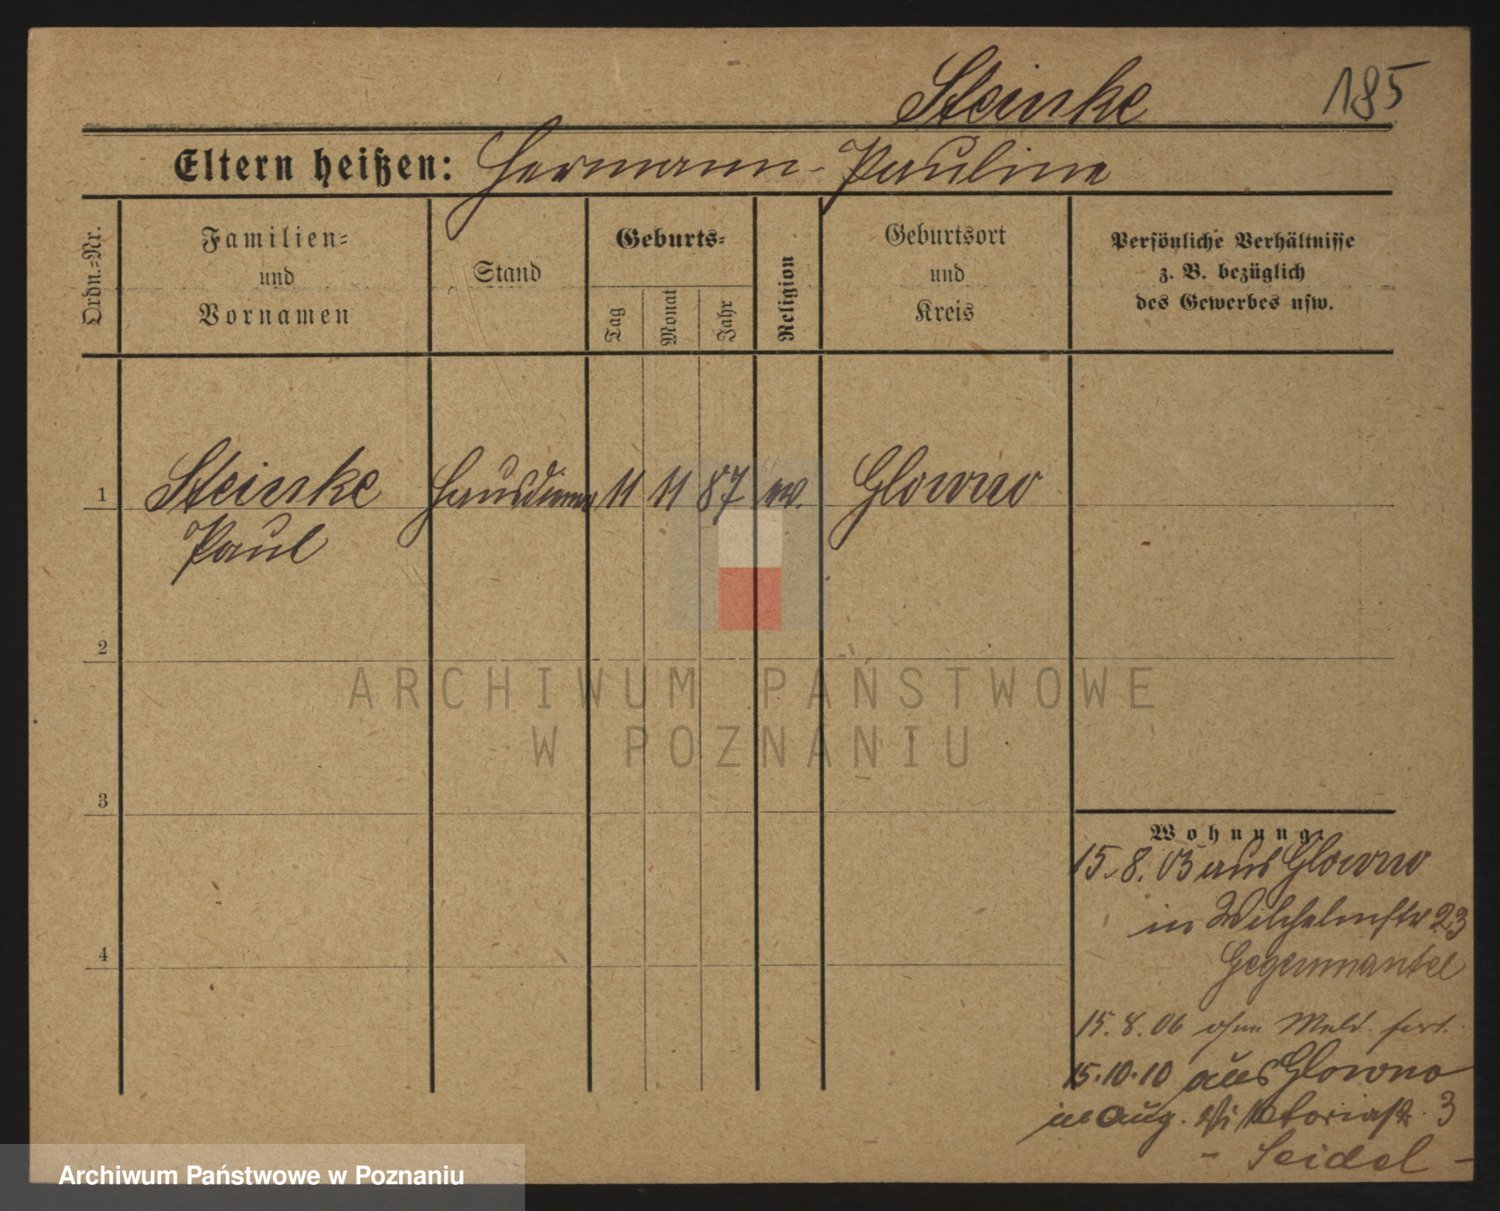 Steinke
185
Eltern heißen: Hermann - Pauline
Ordn.=Nr.
Familien=
und
Vornamen
Stand
Geburts=
Tag
Monat
Jahr
Religion
Geburtsort
und
Kreis
Persönliche Verhältnisse
z. B. bezüglich
des Gewerbes usw.
1
Steinke Hausdiener 11 11 87 ev. Glowno
Paul
2
3
4
Wohnung
15.8.03 aus Glowno
in Wilhelmstr 23
15.8.06 ohne Meld. fort.
15.10.10 aus Glowno
in Aug. Viktoriastr. 3
- Seidel -
ARCHIWUM PAŃSTWOWE
W POZNANIU
Archiwum Państwowe w Poznaniu